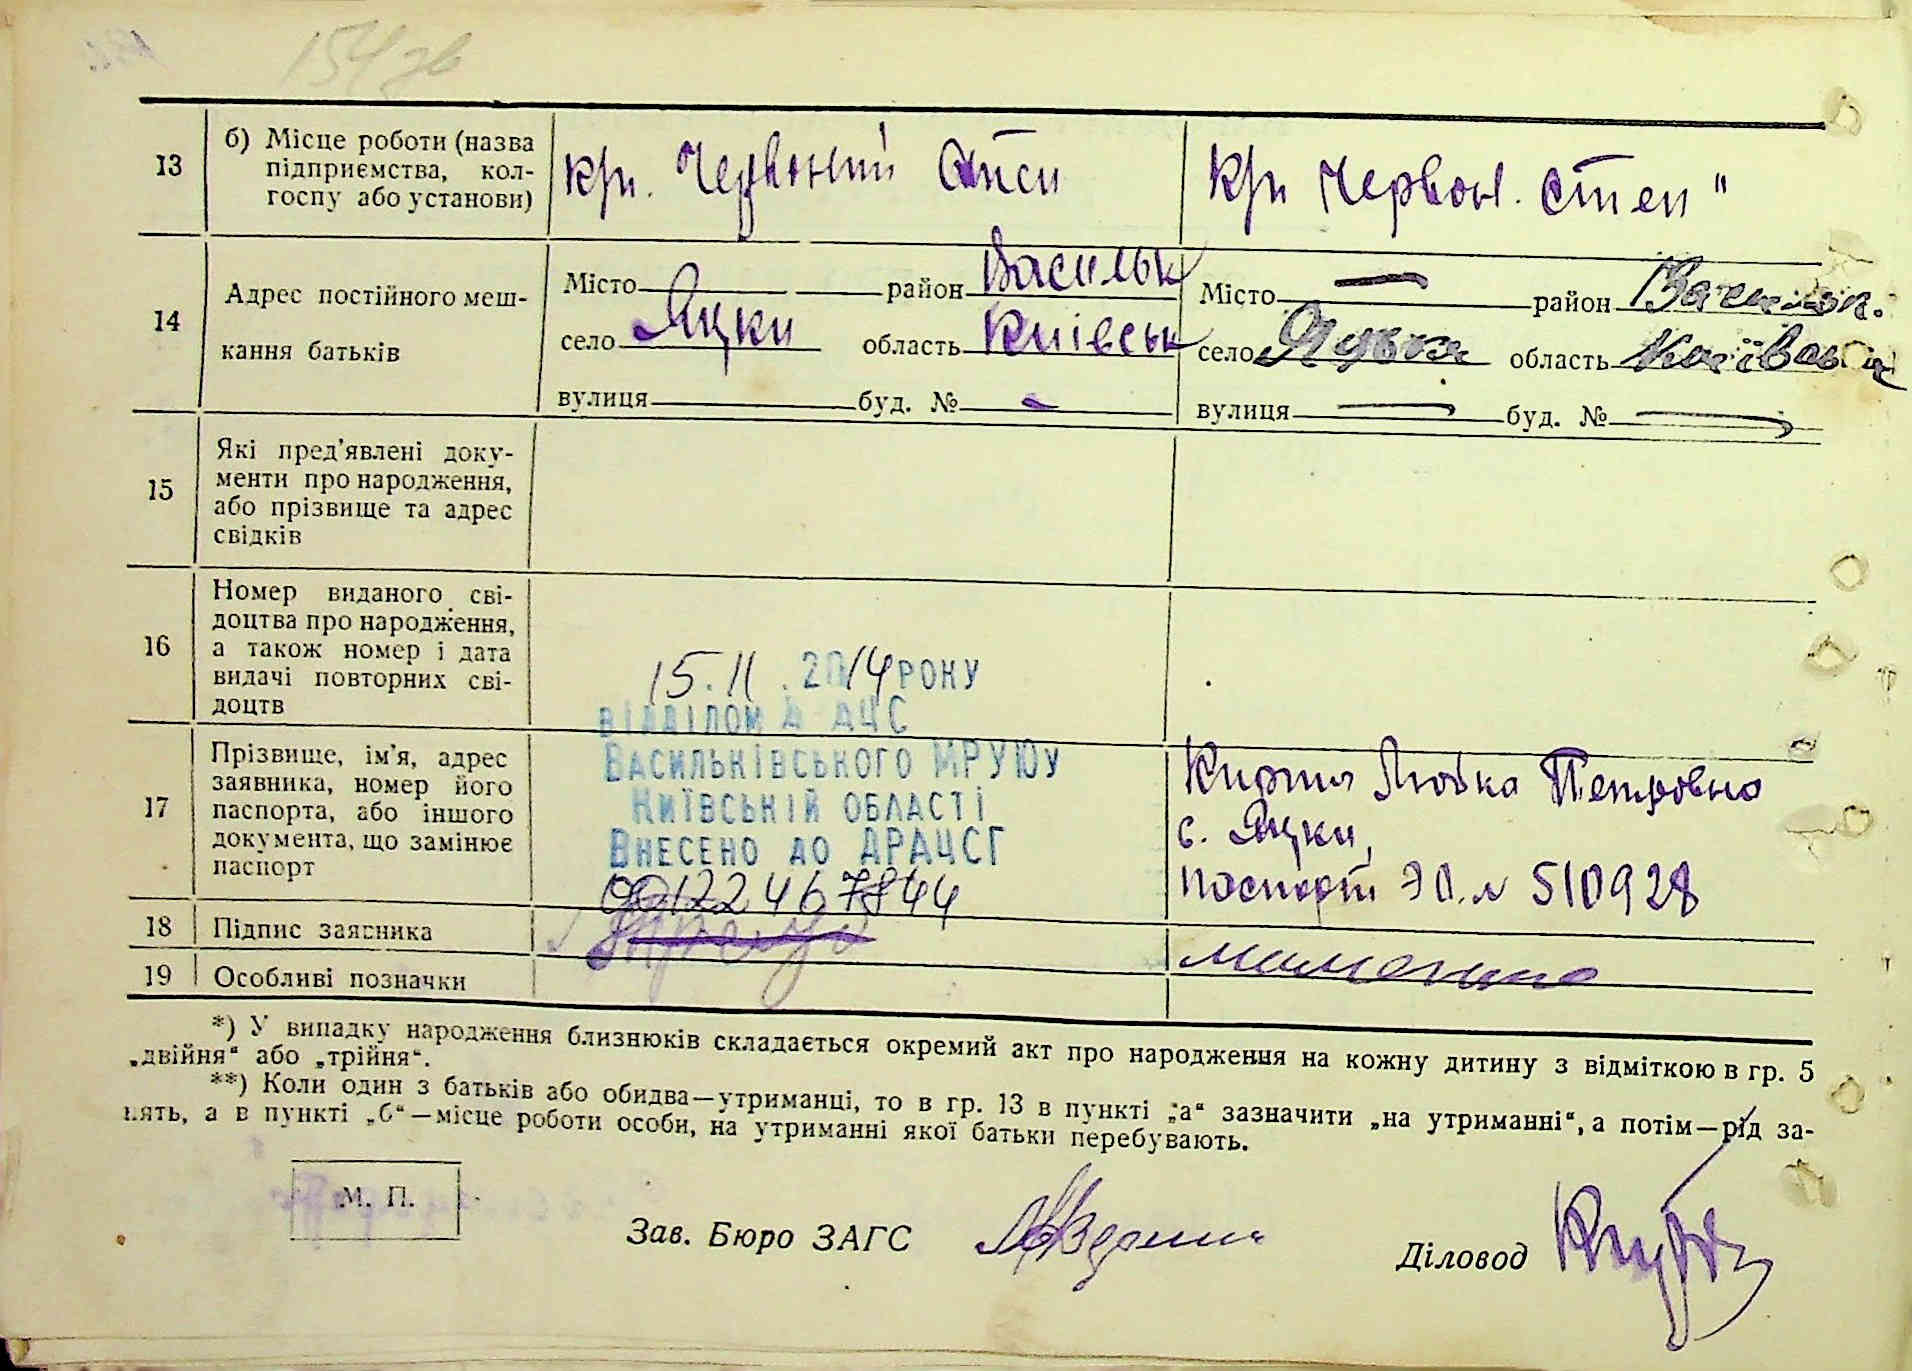 154 зв
13 б) Місце роботи (назва
підприємства, кол-
госпу або установи)
Червоний Степ
Червон. Степ"
14 Адрес постійного меш-
кання батьків
Місто район Васильк
село Яцки область Київськ
вулиця буд. № -
Місто — район Васильк.
село Яцьки область Київськ
вулиця — буд. № —
15 Які пред'явлені доку-
менти про народження,
або прізвище та адрес
свідків
16 Номер виданого сві-
доцтва про народження,
а також номер і дата
видачі повторних сві-
доцтв
15.11.2014 РОКУ
ВІДДІЛОМ ДАЦС
ВАСИЛЬКІВСЬКОГО МРУЮУ
КИЇВСЬКІЙ ОБЛАСТІ
ВНЕСЕНО ДО ДРАЦСГ
00122467844
17 Прізвище, ім'я, адрес
заявника, номер його
паспорта, або іншого
документа, що замінює
паспорт
Петровна
с. Яцки,
паспорт № 510928
18 Підпис заявника
19 Особливі позначки
*) У випадку народження близнюків складається окремий акт про народження на кожну дитину з відміткою в гр. 5
„двійня“ або „трійня“.
**) Коли один з батьків або обидва—утриманці, то в гр. 13 в пункті „а“ зазначити „на утриманні“, а потім—рід за-
нять, а в пункті „б“—місце роботи особи, на утриманні якої батьки перебувають.
М. П.
Зав. Бюро ЗАГС
Діловод